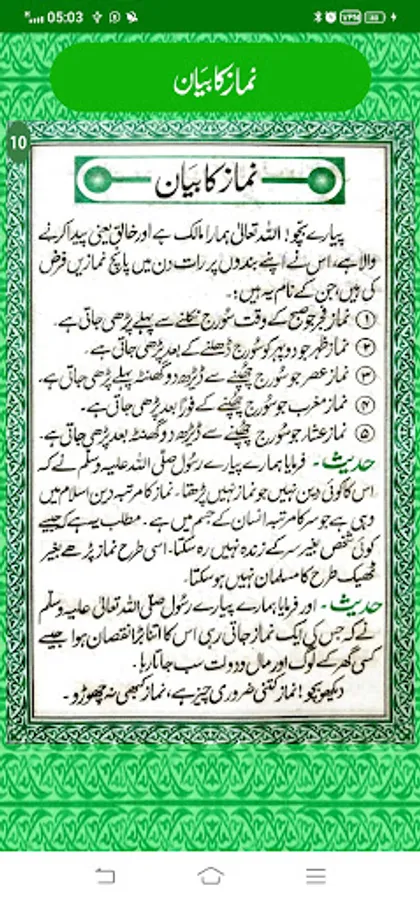 05:03
VPN
نماز کا بیان
10
نماز کا بیان
پیارے بچو! اللہ تعالیٰ ہمارا مالک ہے اور خالق یعنی پیدا کرنے
والا ہے، اس نے اپنے بندوں پر رات دن میں پانچ نمازیں فرض
کی ہیں، جن کے نام یہ ہیں:۔
① نماز فجر جو صبح کے وقت سورج نکلنے سے پہلے پڑھی جاتی ہے۔
② نماز ظہر جو دوپہر کو سورج ڈھلنے کے بعد پڑھی جاتی ہے۔
③ نماز عصر جو سورج چھپنے سے ڈیڑھ دو گھنٹہ پہلے پڑھی جاتی ہے۔
④ نماز مغرب جو سورج چھپنے کے فوراً بعد پڑھی جاتی ہے۔
⑤ نماز عشار جو سورج چھپنے سے ڈیڑھ دو گھنٹہ بعد پڑھی جاتی ہے۔
حدیث۔ فرمایا ہمارے پیارے رسول صلی اللہ علیہ وسلم نے کہ
اس کا کوئی دین نہیں جو نماز نہیں پڑھتا۔ نماز کا مرتبہ دین اسلام میں
وہی ہے جو سر کا مرتبہ انسان کے جسم میں ہے۔ مطلب یہ ہے کہ جیسے
کوئی شخص بغیر سر کے زندہ نہیں رہ سکتا۔ اسی طرح نماز پڑھے بغیر
ٹھیک طرح کا مسلمان نہیں ہو سکتا۔
حدیث۔ اور فرمایا ہمارے پیارے رسول صلی اللہ تعالیٰ علیہ وسلم
نے کہ جس کی ایک نماز جاتی رہی اس کا اتنا بڑا نقصان ہوا جیسے
کسی گھر کے لوگ اور مال و دولت سب جاتا رہا۔
دیکھو بچو! نماز کتنی ضروری چیز ہے، نماز کبھی نہ چھوڑو۔